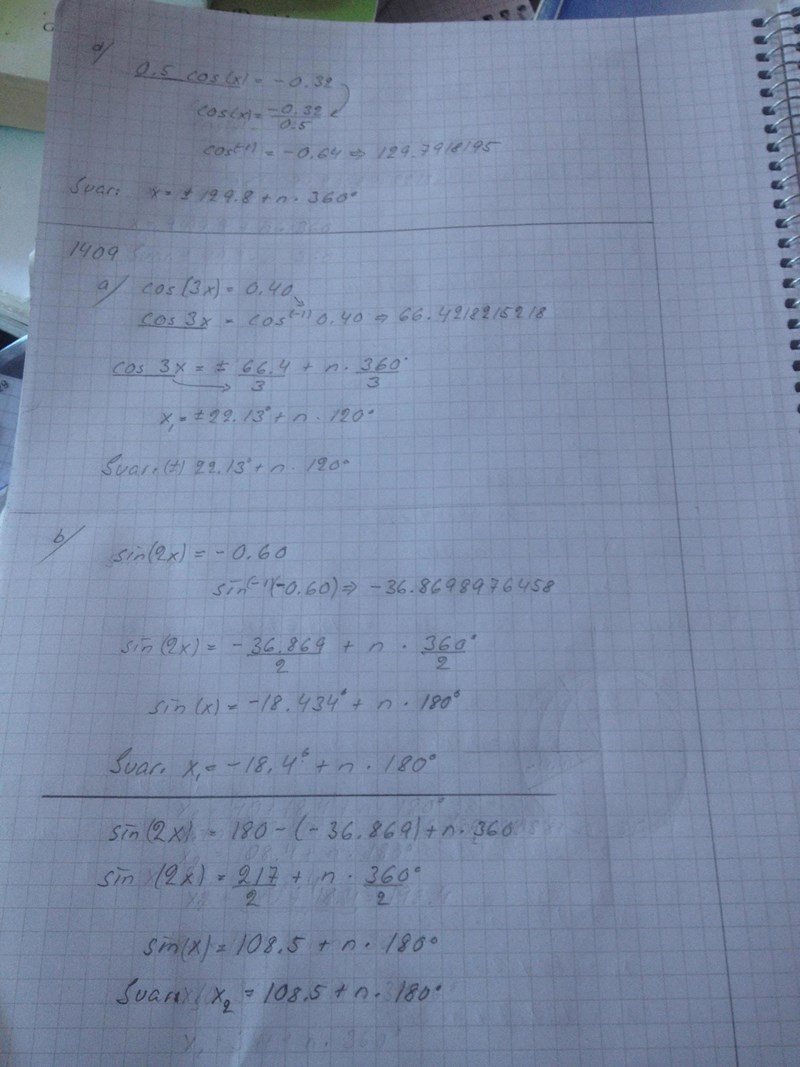 d/
0.5 cos(x) = -0.32
cos(x) = -0.32/0.5
cos(-1) = -0.64 ⇒ 129.7918195
Svar: x = ± 129.8 + n · 360°
1409
a/ cos(3x) = 0.40
cos 3x = cos(-1) 0.40 ⇒ 66.4218215218
cos 3x = ± 66.4/3 + n · 360°/3
x₁ = ±22.13° + n · 120°
Svar: (±) 22.13° + n · 120°
b/
sin(2x) = -0.60
sin(-1)(-0.60) ⇒ -36.8698976458
sin(2x) = -36.869/2 + n · 360°/2
sin(x) = -18.434° + n · 180°
Svar: x₁ = -18.4° + n · 180°
sin(2x) = 180 - (-36.869) + n · 360°
sin(2x) = 217/2 + n · 360°/2
sin(x) = 108.5 + n · 180°
Svar: x₂ = 108.5 + n · 180°